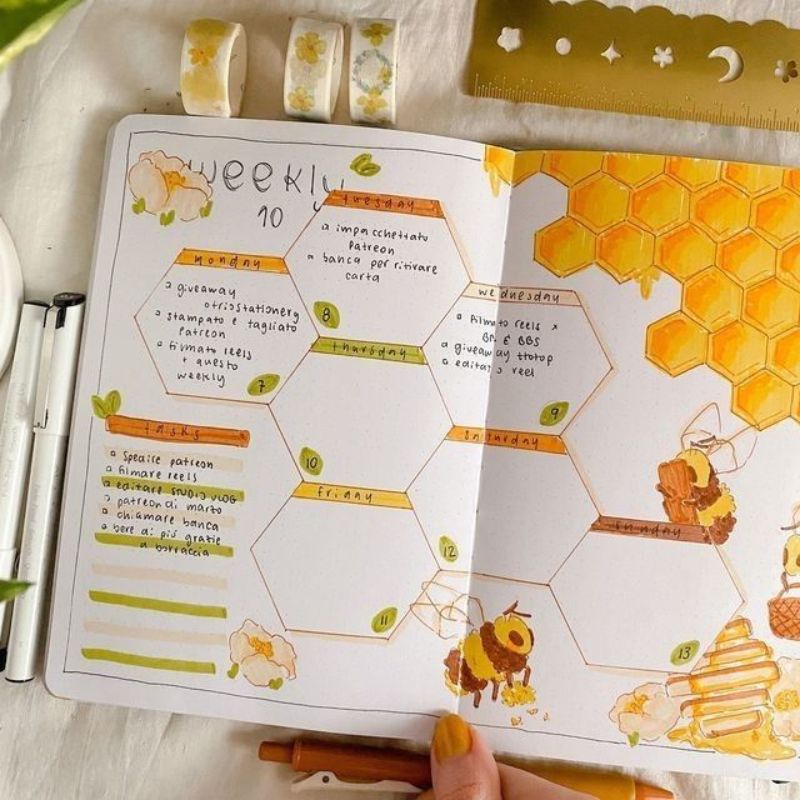 weekly
10
monday
giveaway
otrisstationery
stampato e tagliato
Patreon
filmato reels
+ questo
weekly
7
tuesday
impacchettato
Patreon
banca per ritirare
carta
8
wednesday
filmato reels x
& BBS
giveaway
editato reel
9
thursday
10
friday
11
saturday
12
sunday
13
tasks
spedire patreon
filmare reels
editare STUDIO VLOG
patreon di marzo
chiamare banca
bere di più grazie
a borraccia